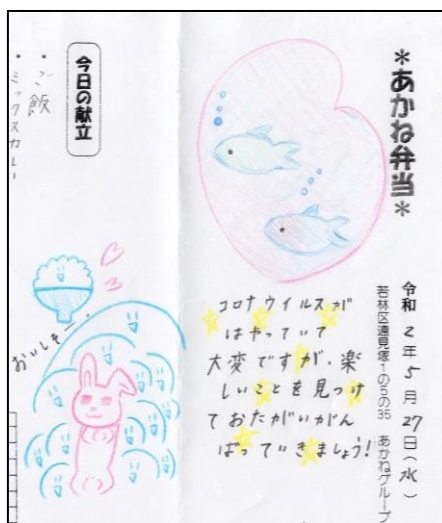 ＊あかね弁当＊
令和2年5月27日(水)
若林区遠見塚1の5の35　あかねグループ
コロナウイルスが
はやっていて
大変ですが、楽
しいことを見つけ
ておたがいがん
ばっていきましょう!
今日の献立
・ご飯
・ミックスカレー
おいしそー。